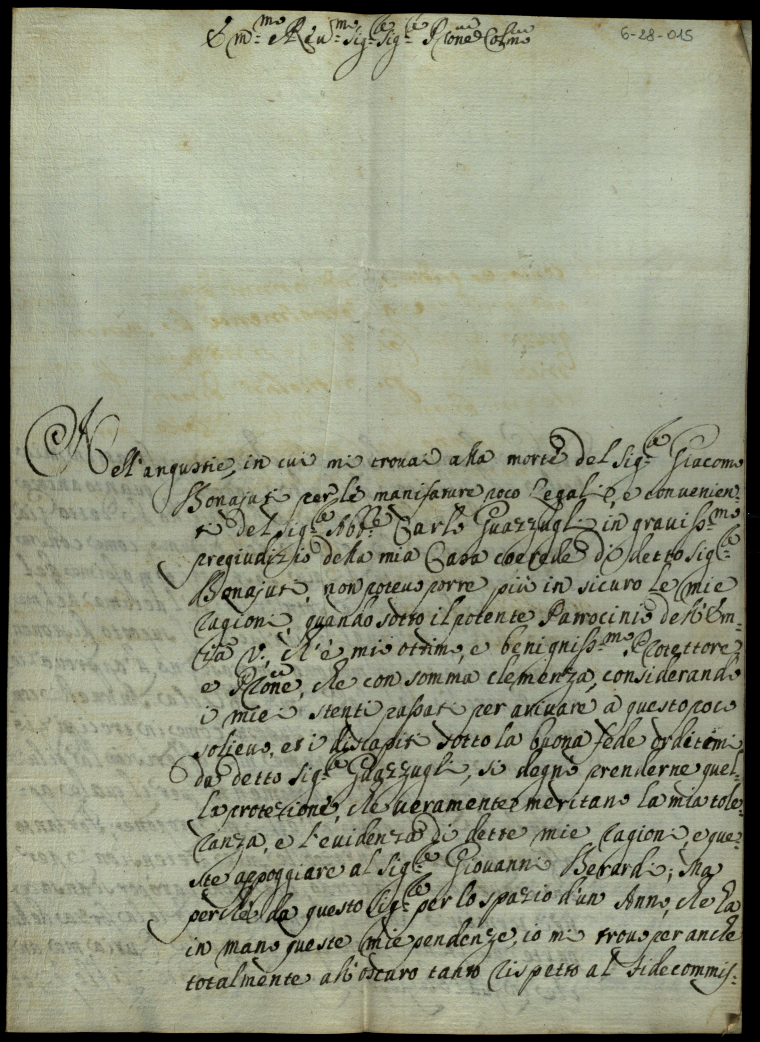 Em.mo e Rev.mo Sig.re Sig.re Pròne Col.mo
6-28-015
Nell'angustie, in cui mi trovai alla morte del Sig.re Giacomo
Bonajuti per le manifatture poco legali, e convenien-
ti del Sig.re Abb.e Carlo Guazzugli in graviss.mo
pregiudizio della mia Casa coerede di detto Sig.re
Bonajuti, non potevo porre più in sicuro le mie
ragioni, quando sotto il potente Patrocinio dell'Em-
za v., ch'è mio ottimo, e benigniss.mo Protettore
e Pròne, che con somma clemenza, considerando
i miei stenti passati per arivare à questo poco
solievo, et i discapiti sotto la buona fede orditemi
da detto Sig.re Guazzugli, si degnò prenderne quel-
la protezione, che veramente meritano la mia tole-
ranza, e l'evidenza di dette mie ragioni, e que-
ste appoggiare al Sig.re Giovanni Berardi; Ma
perche da questo Sig.re per lo spazio d'un Anno, che hà
in mano queste mie pendenze, io mi trovo per anche
totalmente all'oscuro tanto rispetto al Fidecommis-